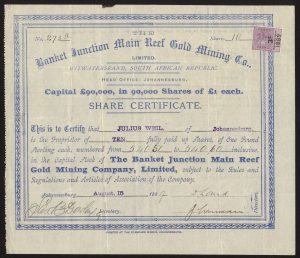 THE
No. Shares 10
Banket Junction Main Reef Gold Mining Co.,
LIMITED.
WITWATERSRAND, SOUTH AFRICAN REPUBLIC.
HEAD OFFICE: JOHANNESBURG.
Capital £90,000, in 90,000 Shares of £1 each.
SHARE CERTIFICATE.
This is to Certify that JULIUS WEIL of Johannesburg
is the Proprietor of TEN fully paid up Shares, of One Pound
Sterling each, numbered from to inclusive,
in the Capital Stock of The Banket Junction Main Reef
Gold Mining Company, Limited, subject to the Rules and
Regulations and Articles of Association of the Company.
Johannesburg August, 15 188
Secretary.